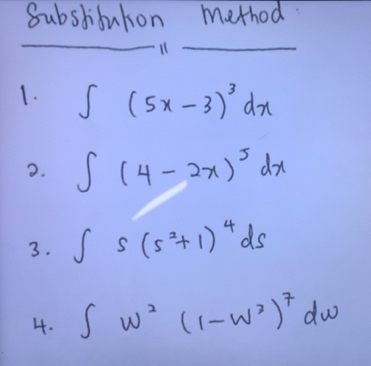 Substitution Method:
1. ∫ (5x − 3)³ dx
2. ∫ (4 − 2x)⁵ dx
3. ∫ s (s² + 1)⁴ ds
4. ∫ w² (1 − w³)⁷ dw